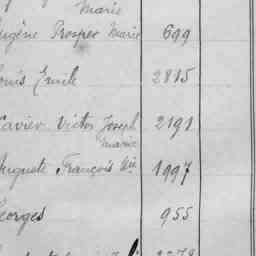 Marie
Eugène Prosper Marie 699
Louis Emile 2815
Xavier Victor Joseph 2191
Marie
Auguste François Mie 1997
Georges 955